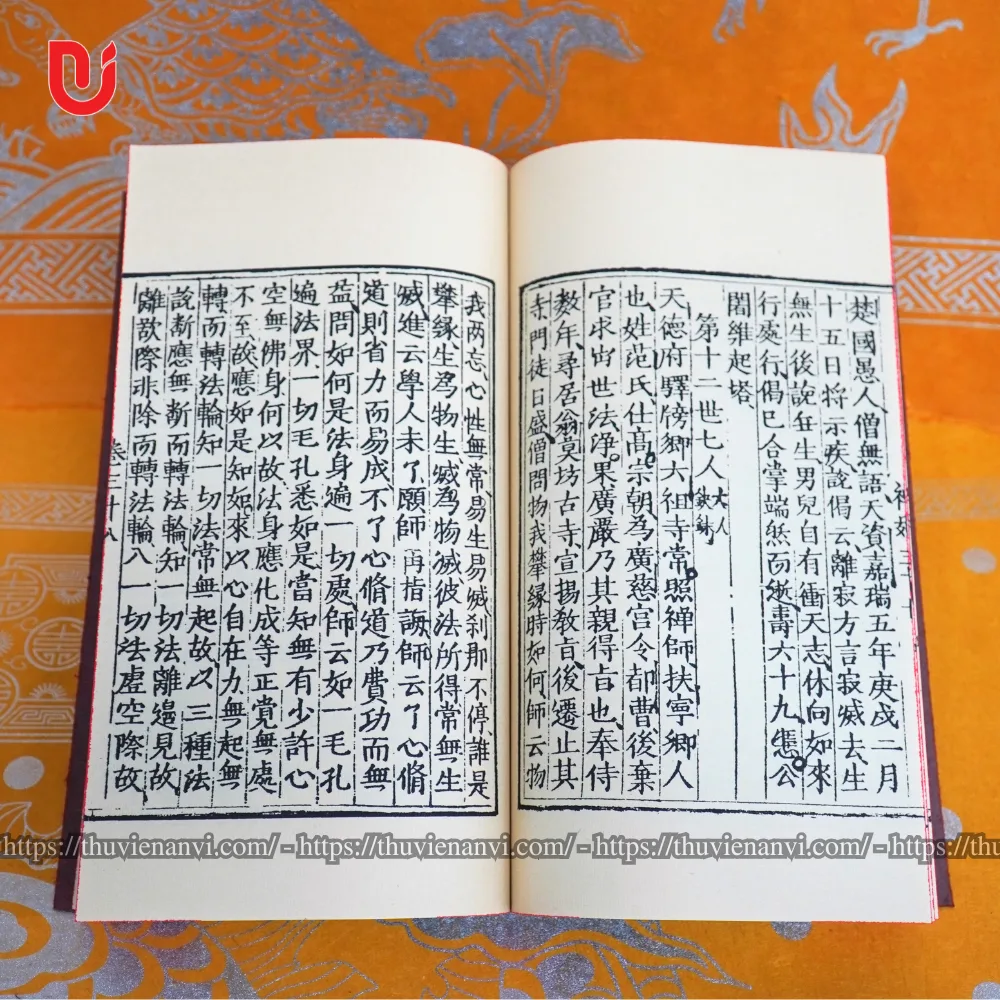 楚國愚人僧無語天資嘉瑞五年庚戌二月
十五日将示疾說偈云離寂方言寂滅去生
無生後說無生男兒自有衝天志休向如來
行處行偈已合掌端然而逝壽六十九惠公
闍維起塔
第十二世七人
六人
缺録
天德府驛傍鄉大祖寺常照禅師扶寧鄉人
也姓范氏仕高宗朝為廣慈宫令都曹後棄
官求出世法淨果廣嚴乃其親得旨也奉侍
数年尋居翁莫坊古寺宣揚教旨後遷止其
寺門徒日盛僧問物我攀緣時如何師云物
我两忘心性無常易生易滅刹那不停誰是
攀縁生為物生滅為物滅彼法所得常無生
滅進云學人未了願師再指誨師云了心脩
道則省力而易成不了心脩道乃費功而無
益問如何是法身遍一切處師云如一毛孔
遍法界一切毛孔悉如是當知無有少許心
空無佛身何以故法身應化成等正覺無處
不至故應如是知如來以心自在力無起無
轉而轉法輪知一切法常無起故以三種法
說断應無断而轉法輪知一切法離邉見故
離欲際非除而轉法輪入一切法虚空際故
卷上三十八
https://thuvienanvi.com/ -https://thuvienanvi.com/ -https://thuvienanvi.com/ -https://thuvienanvi.com/